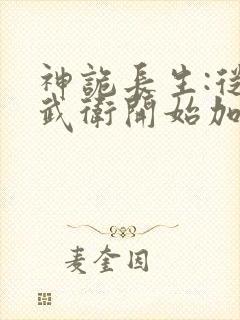 神詭長生:從
武衛開始加
麦奎因